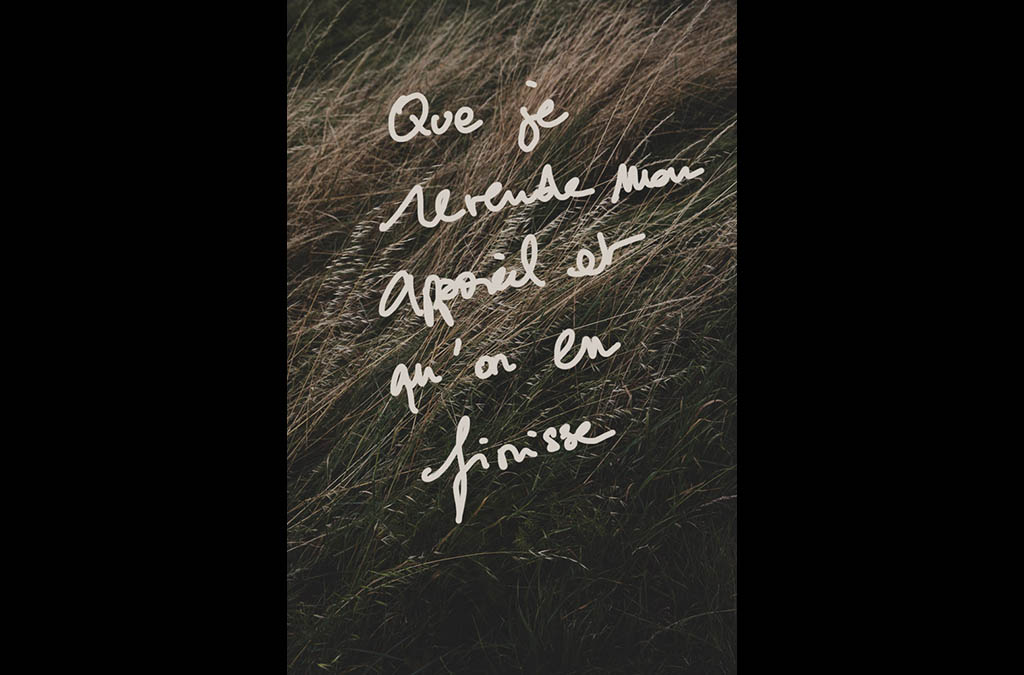 Que je
revende mon
appareil et
qu'on en
finisse